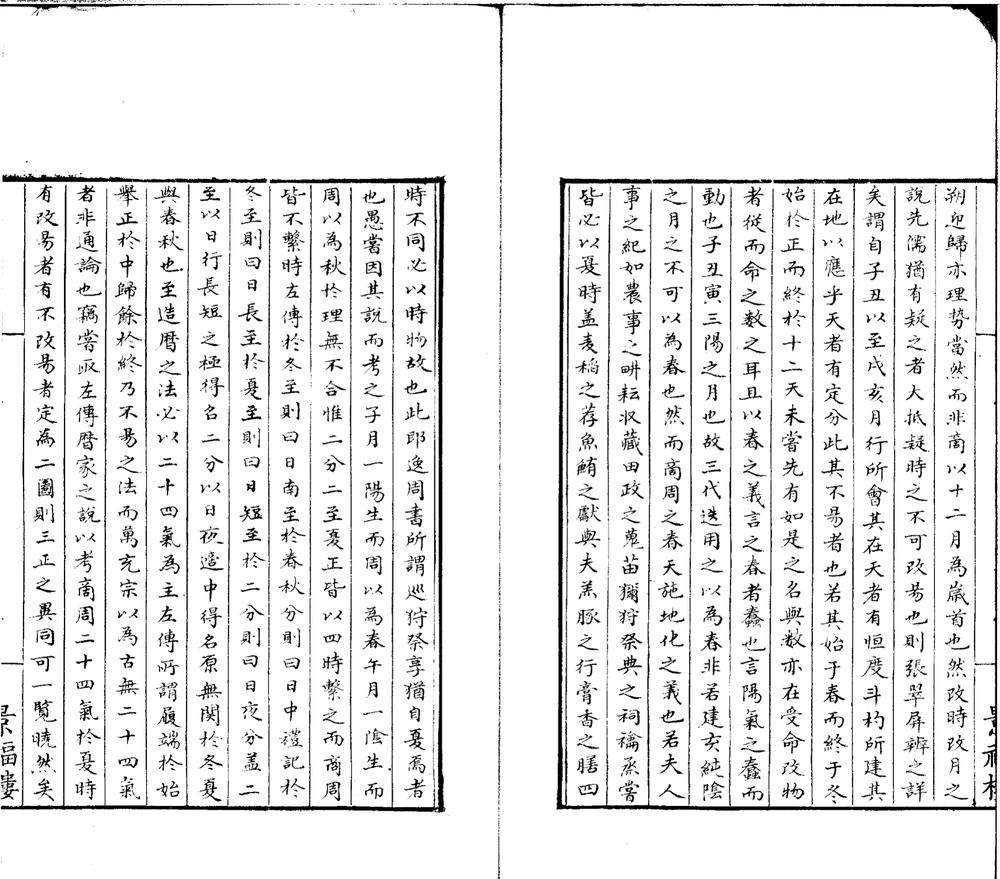 朔迎歸亦理勢當然而非商以十二月為歲首也然改時改月之
說先儒猶有疑之者大抵疑時之不可改易也則張翠屏辨之詳
矣謂自子丑以至戌亥月行所會其在天者有恒度斗杓所建其
在地以應乎天者有定分此其不易者也若其始于春而終于冬
始於正而終於十二天未嘗先有如是之名與數亦在受命改物
者從而命之数之耳且以春之義言之春者蠢也言陽氣之蠢而
動也子丑寅三陽之月也故三代迭用之以為春非若建亥純陰
之月之不可以為春也然而商周之春天施地化之義也若夫人
事之紀如農事之畊耘收藏田政之蒐苗獮狩祭典之祠禴烝嘗
皆必以夏時盖麦稻之荐魚鮪之獻與夫羔豚之行膏香之膳四
時不同必以時物故也此即逸周書所謂巡狩祭享猶自夏焉者
也愚嘗因其說而考之子月一陽生而周以為春午月一陰生而
周以為秋於理無不合惟二分二至夏正皆以四時繫之而商周
皆不繫時左傳於冬至則曰日南至於春秋分則曰日中禮記於
冬至則曰日長至於夏至則曰日短至於二分則曰日夜分盖二
至以日行長短之極得名二分以日夜適中得名原無関於冬夏
與春秋也至造曆之法必以二十四氣為主左傳所謂履端於始
舉正於中歸餘於終乃不易之法而萬充宗以為古無二十四氣
者非通論也竊嘗取左傳曆家之說以考商周二十四氣於夏時
有改易者有不改易者定為二圖則三正之異同可一覧曉然矣
景福樓